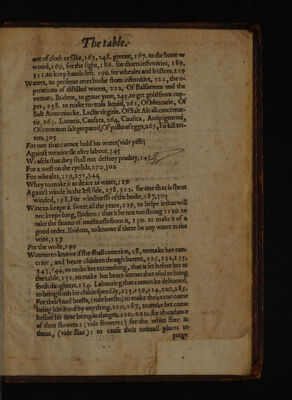 The table.
out of cloth or silke, 163, 248. greene, 167. to die bone or
wood, 169. for the sight, 186. for diuers infirmities, 189,
311. to keep hands soft. 190. for wheales and blisters, 219
Waters, to preserue ones bodie from infirmities, 221, the o-
perations of distilled waters, 222, Of Balsamum and the
vertues. Ibidem, to graue yron, 245, to get gold from cop-
per, 258. to make mettals liquid, 261, Of Mercurie, Of
Salt Armoniacke. Lactis virginis. Of Salt Alcali comenci-
ris. 263. Lunaria, Causara, 264, Caustica, Antipigmenti,
Of common salt prepared, Of yolks of egges, 265, To kill tet-
ters, 305
For one that cannot hold his water (vide pisse)
Against wearinesse after labour, 345
Weasels that they shall not destroy poultry, 141
For a wert on the eyelids, 270, 302
For wheales, 219, 271, 344
Whey to make it as deare as water, 139
Against winde in the left side, 278, 322, for one that is short
winded, 198, For windinesse of the bodie, 287, 305
Wine to keepe it sweet all the yeare, 129, to helpe it that will
not keepe long, Ibidem: that it be not too strong 139. to
take the sauour of mustinesse from it, 130. to make it of a
good order. Ibidem, to knowe if there be any water in the
wine, 137
For the wolfe, 299
Women to knowe if she shall conceiue, 28, to make her con-
ceiue, and beare children though barren, 125, 132, 135,
341, 94, to make her eat nothing, that is set before her at
the table, 131, to make her beare sonnes that vsed to bring
forth daughters. 134. Labouring that cannot be deliuered,
to bring forth hir childe speedily, 135, 159, 124, 220, 285,
For their hard brests, (vide brests;) to make them come
being hindered by any thing. 220, 287, to make her come
before hir time being in danger, 220, 222. for abundance
of their flowers: (vide flowers:) for the white fluxe in
them, (vide fluxe): to cause their naturall places to
purge